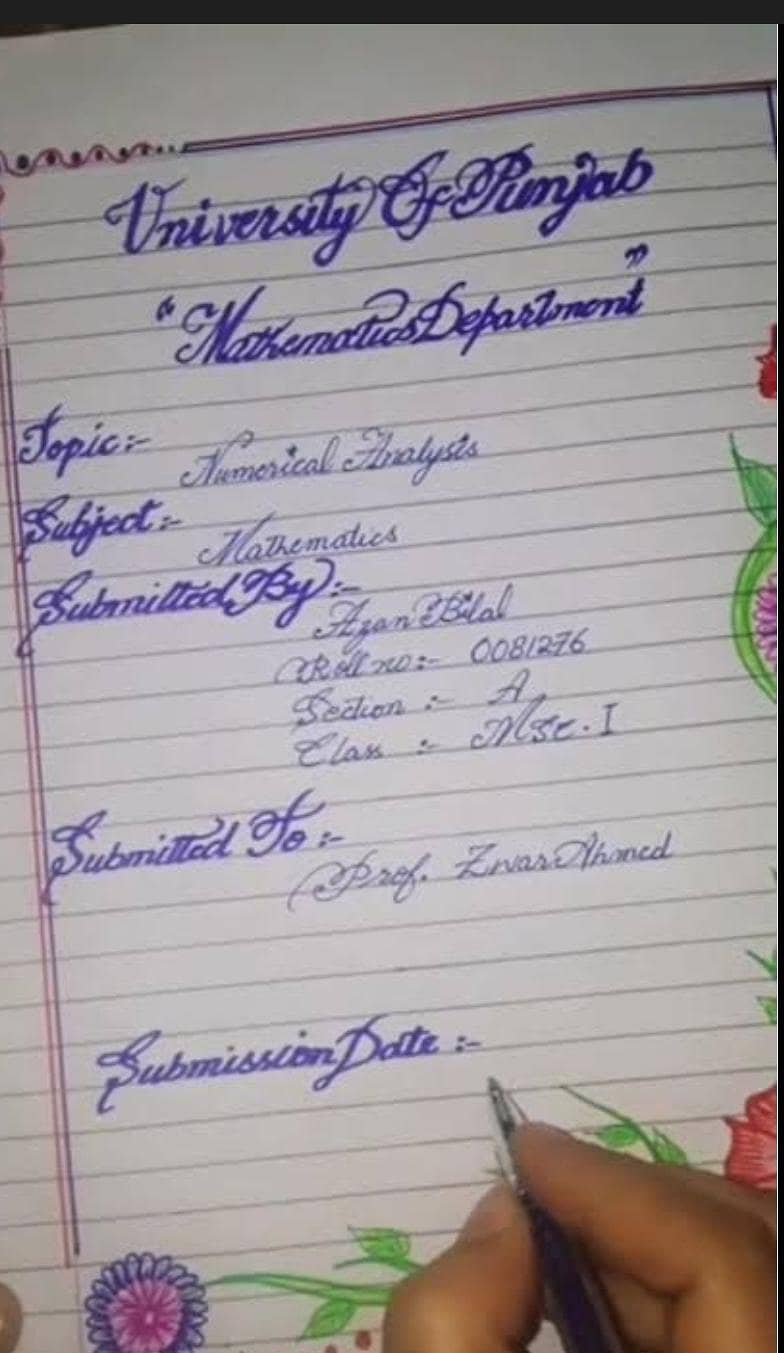 University Of Punjab
"Mathematics Department"
Topic:-
Numerical Analysis
Subject:-
Mathematics
Submitted By:-
Azan Bilal
Roll no:- 0081276
Section :- A
Class :- MSc. I
Submitted To:-
Prof. Zwar Ahmed
Submission Date:-